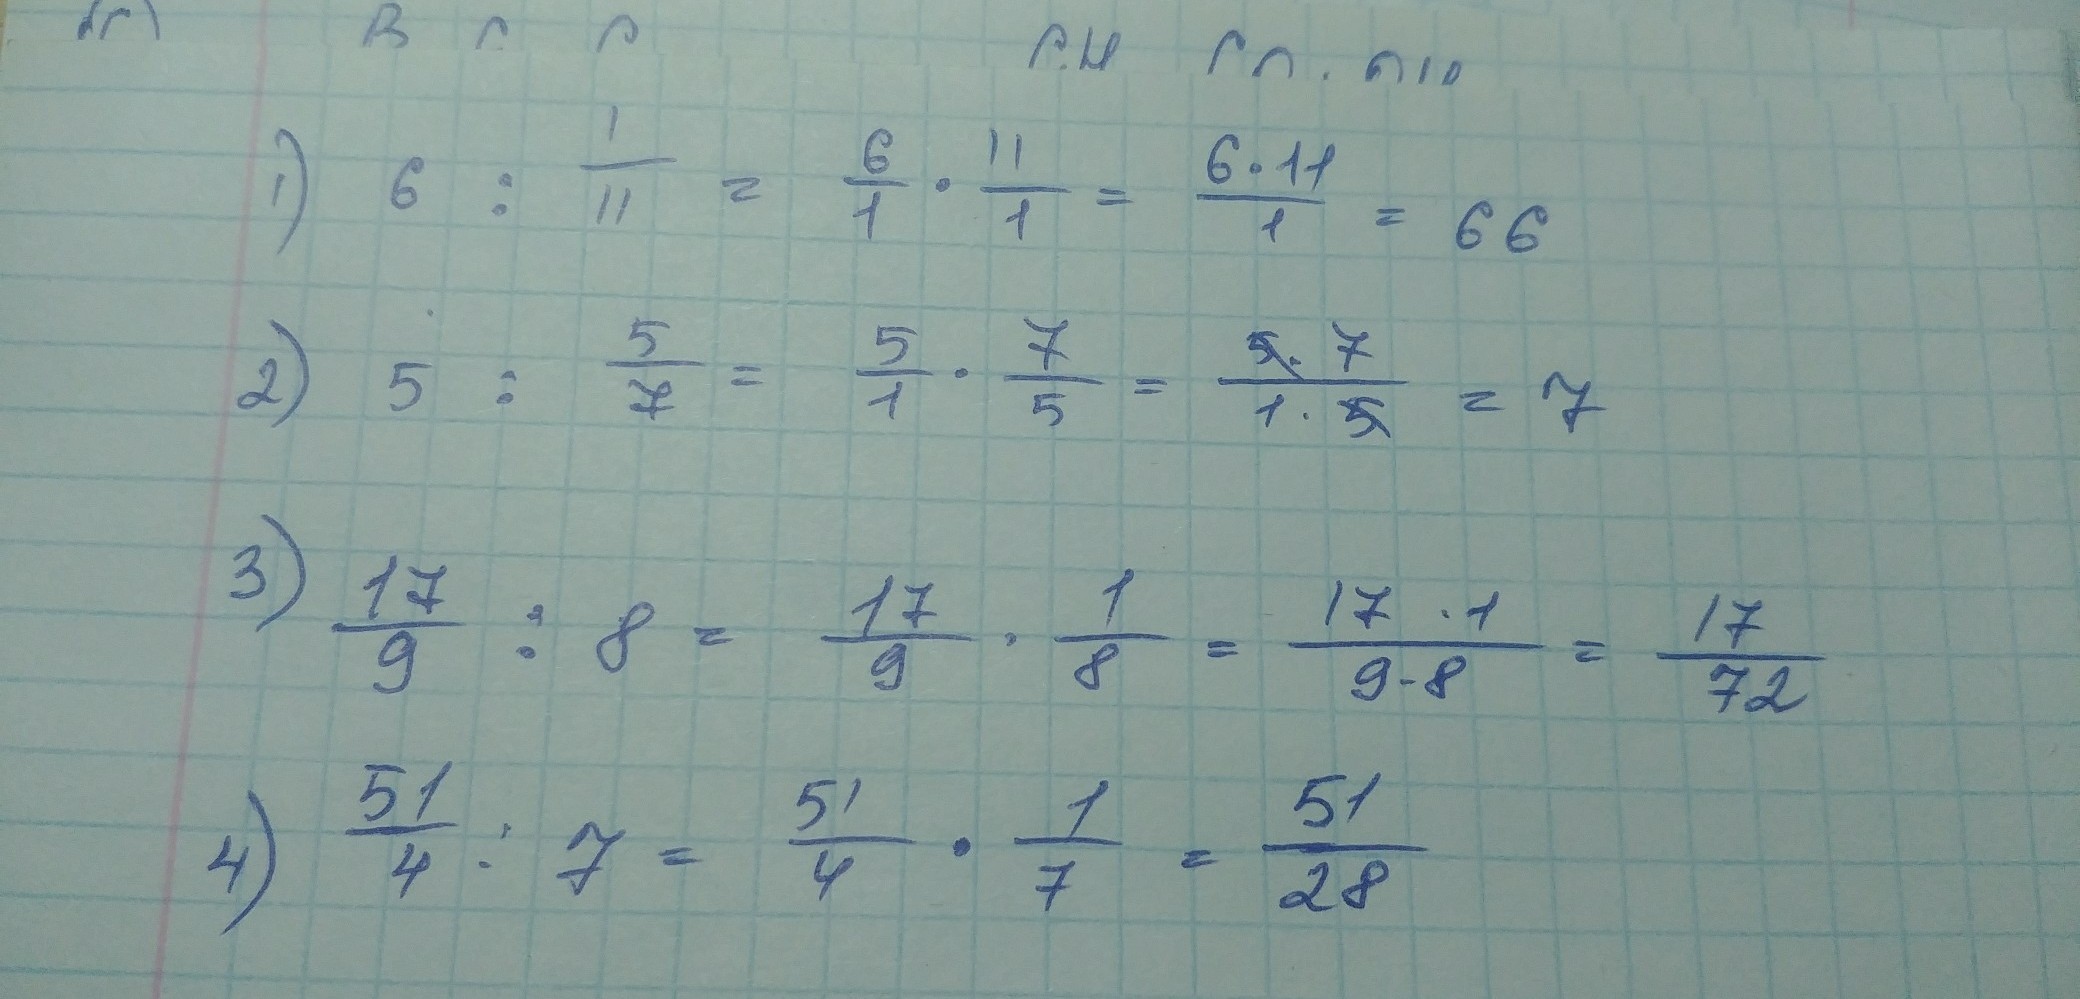 1) 6 : 1/11 = 6/1 · 11/1 = 6·11/1 = 66
2) 5 : 5/7 = 5/1 · 7/5 = 5·7/1·5 = 7
3) 17/9 : 8 = 17/9 · 1/8 = 17·1/9·8 = 17/72
4) 51/4 : 7 = 51/4 · 1/7 = 51/28